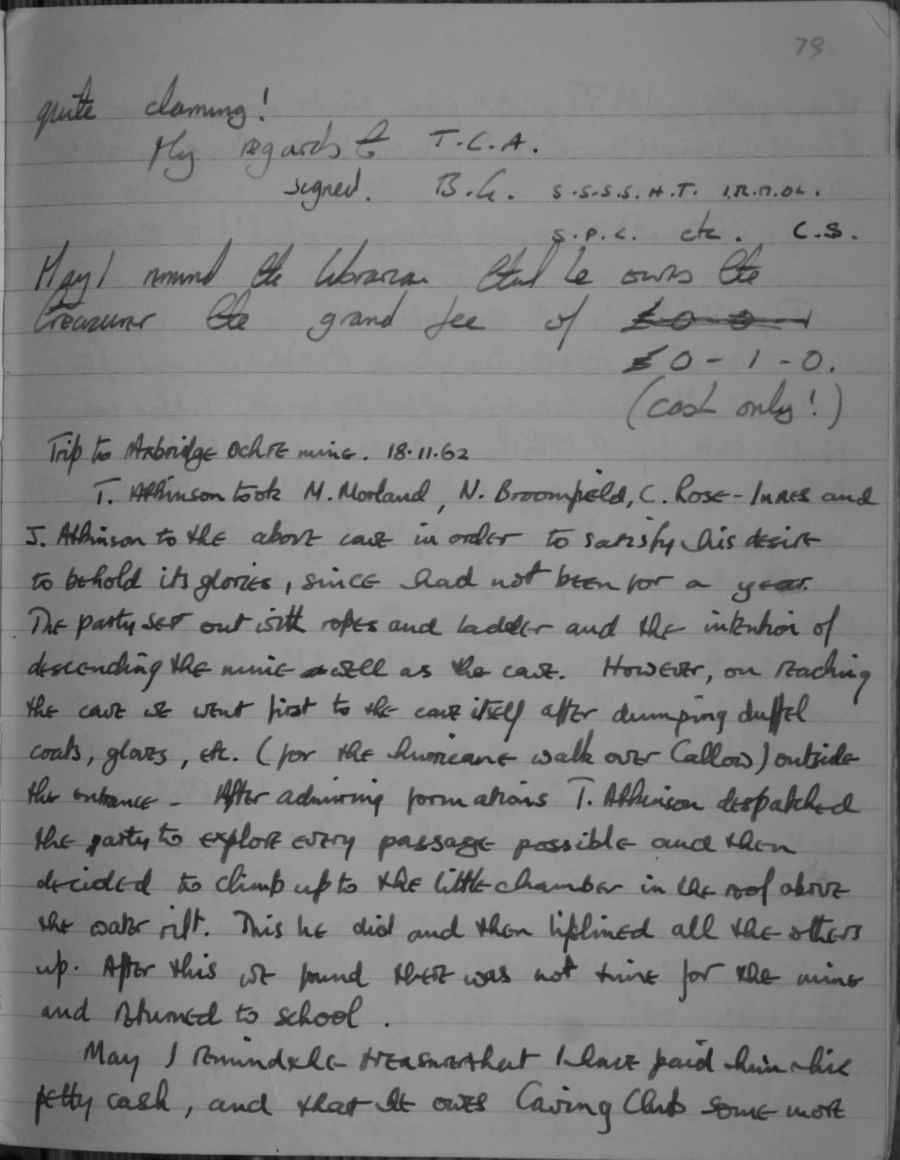 79
quite claming!
My regards to T.C.A.
signed. B.G. S.S.S.S.H.T.
S.P.C. etc. C.S.
May I remind the librarian that he owes the
treasurer the grand fee of £0-0-1
£0-1-0.
(cash only!)
Trip to Axbridge Ochre mine. 18.11.62
T. Atkinson took M. Morland, N. Broomfield, C. Rose-Innes and
J. Atkinson to the above cave in order to satisfy his desire
to behold its glories, since had not been for a year.
The party set out with ropes and ladder and the intention of
descending the mine as well as the cave. However, on reaching
the cave we went first to the cave itself after dumping duffel
coats, gloves, etc. (for the hurricane walk over Callow) outside
the entrance - After admiring formations T. Atkinson despatched
the party to explore every passage possible and then
decided to climb up to the little chamber in the roof above
the water rift. This he did and then liflined all the others
up. After this we found there was not time for the mine
and returned to school.
May I remind the treasurer that I have paid him his
petty cash, and that he owes Caving Club some more